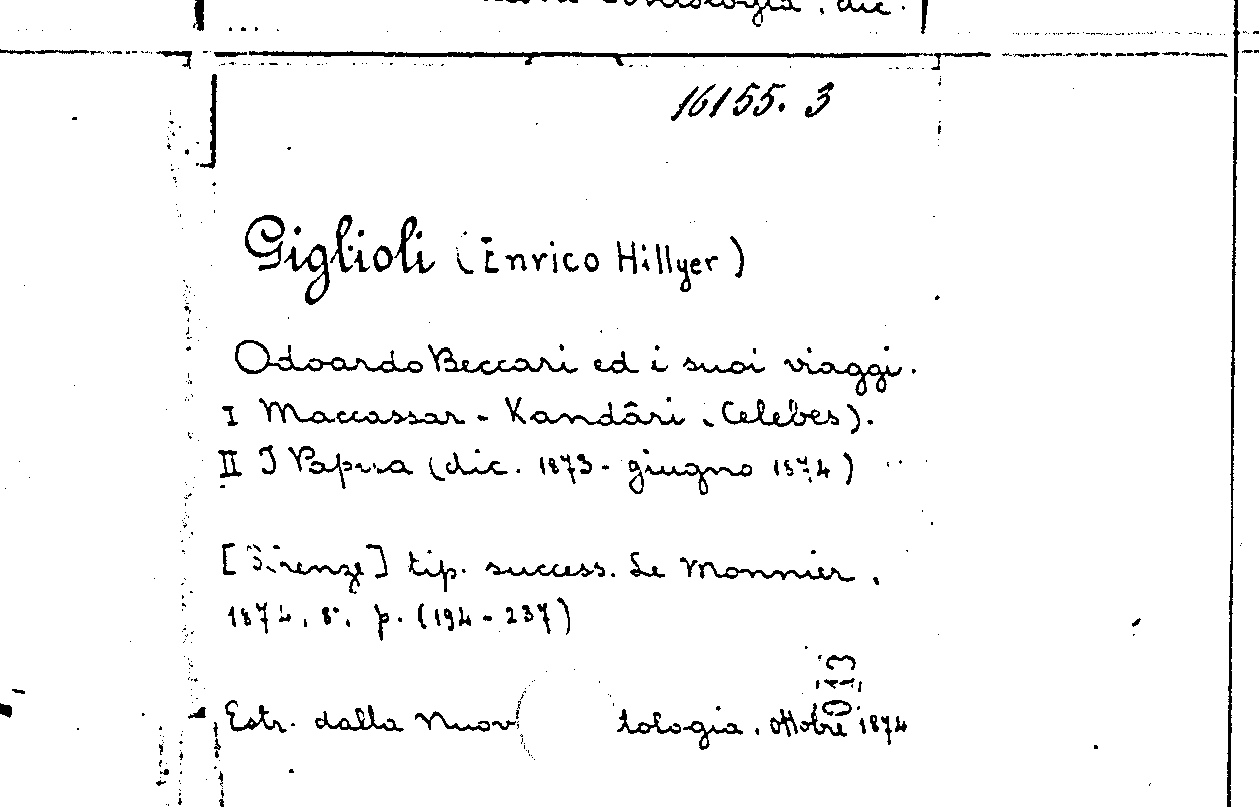 16155. 3
Giglioli (Enrico Hillyer)
Odoardo Beccari ed i suoi viaggi.
I Maccassar - Kandâri (Celebes).
II I Papua (dic. 1873 - giugno 1874)
[Firenze] tip. success. Le Monnier,
1874. 8°. p. (194 - 237)
013
Estr. dalla Nuov tologia. ottobre 1874